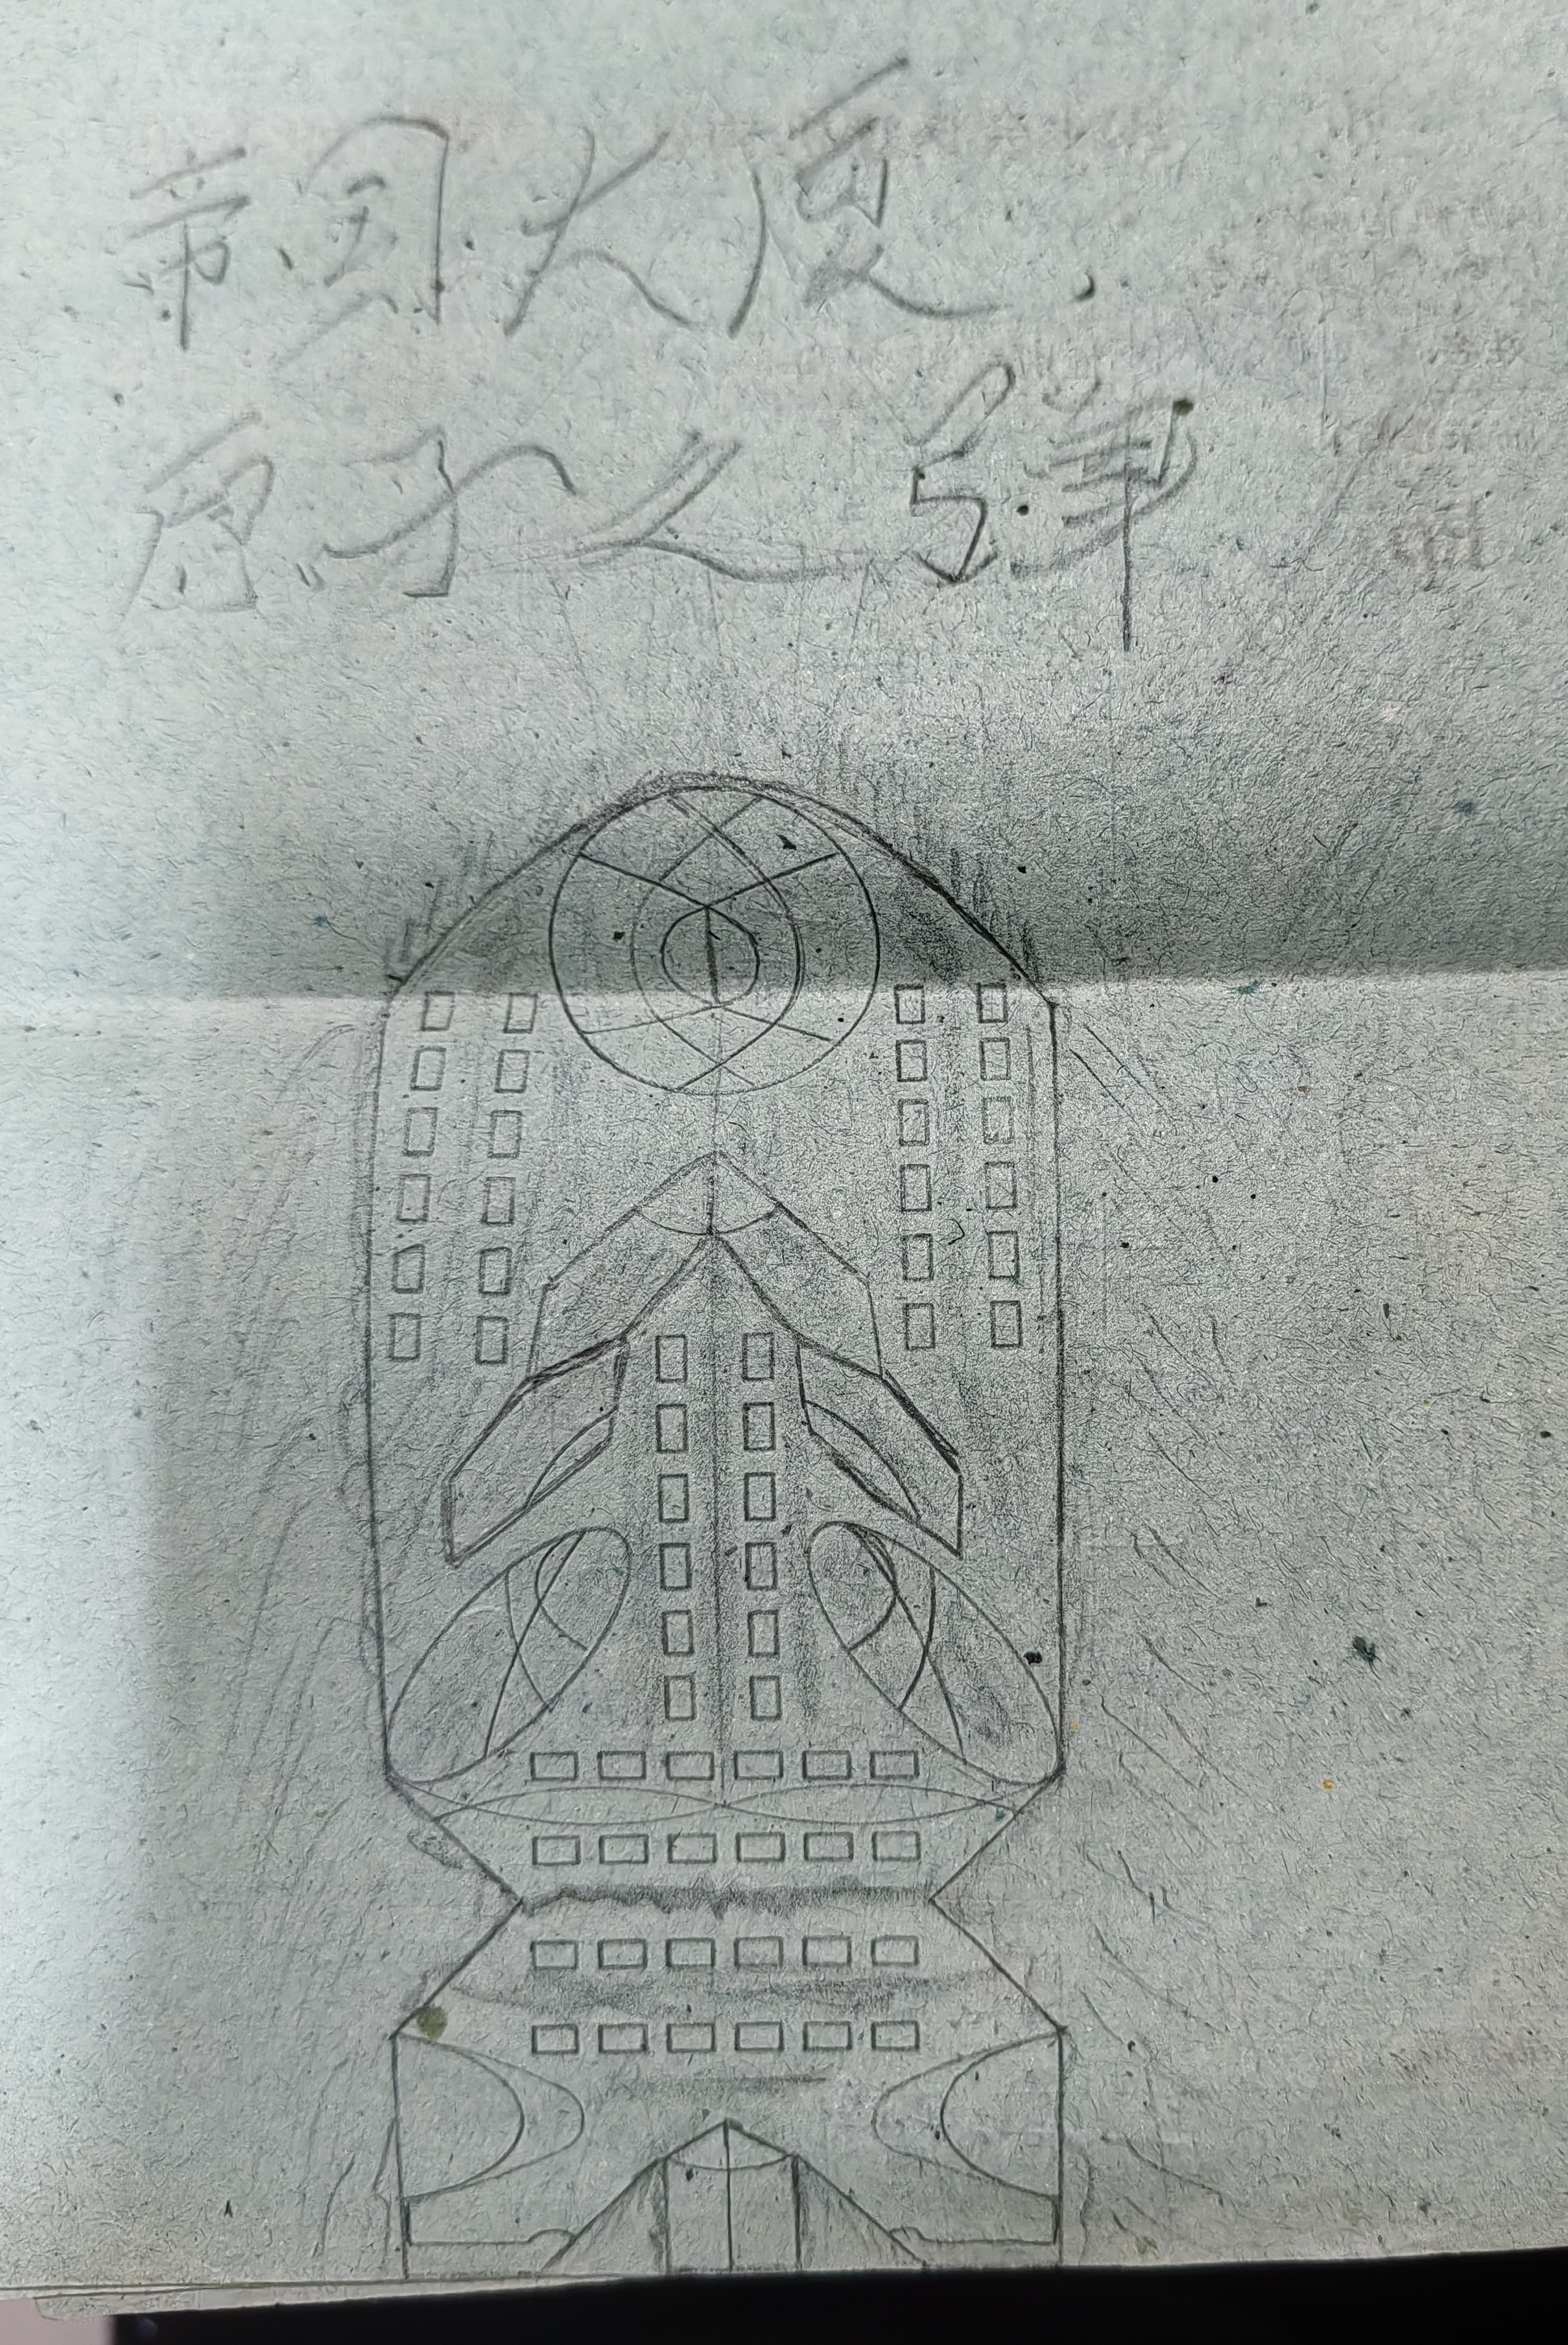 帝国大厦.
原子之弹